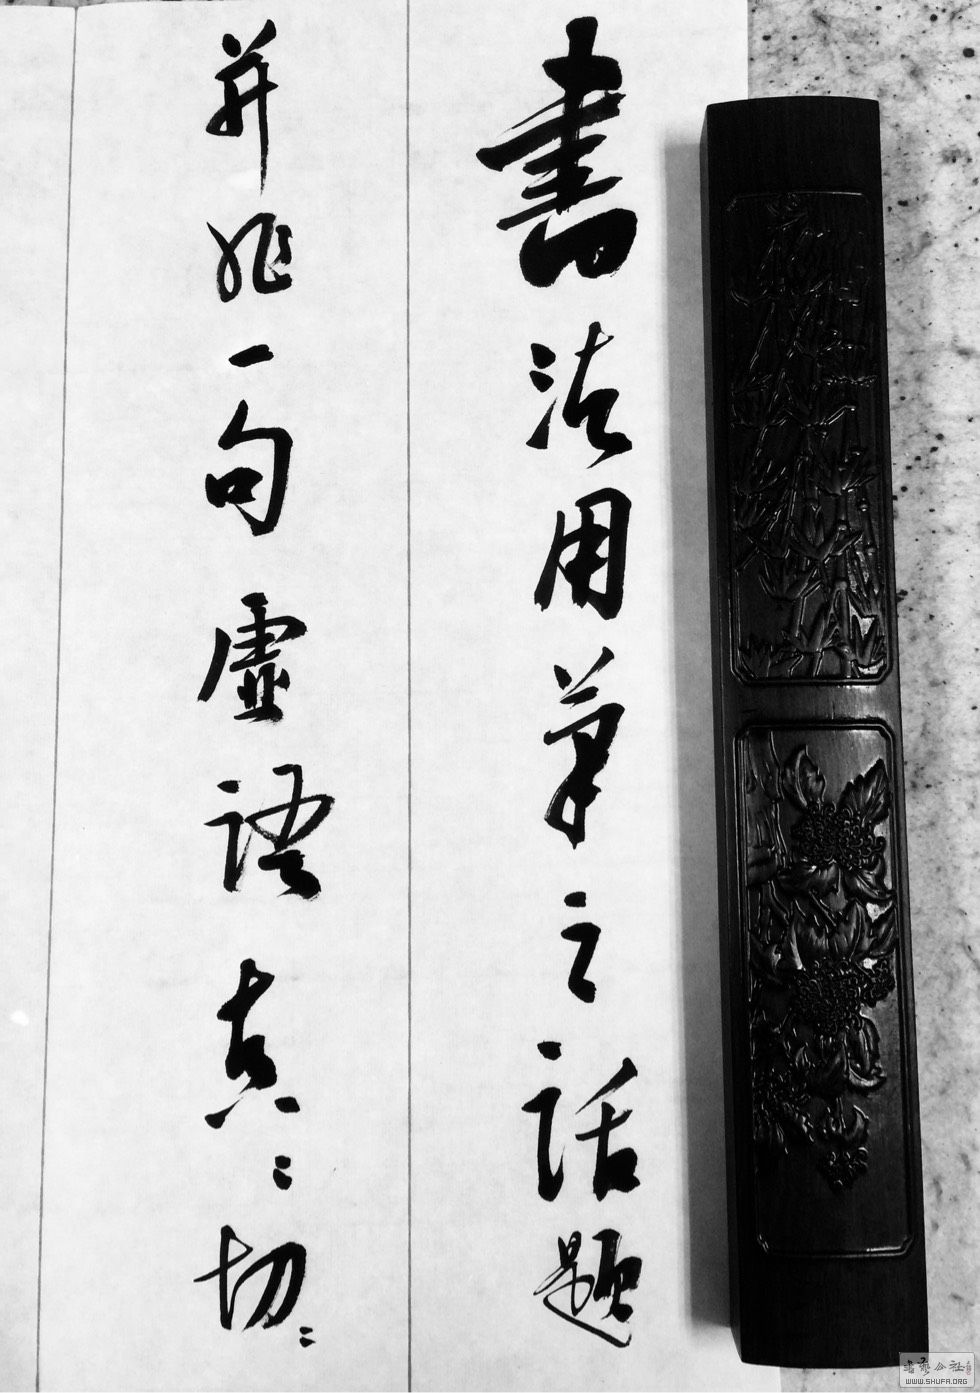 書法用筆之話題
并非一句虛語真〻切〻
書藝公社
WWW.SHUFA.ORG